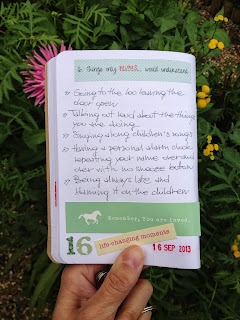 6. Things only MUMS would understand
» Going to the loo leaving the
door open
» Talking out loud about the things
you are doing
» Singing along children's songs
» Having a personal alarm clock
repeating your name over and
over with no snooze button
» Being always late and
blaming it on the children
Remember, You are loved.
16
life-changing moments
16 SEP 2013